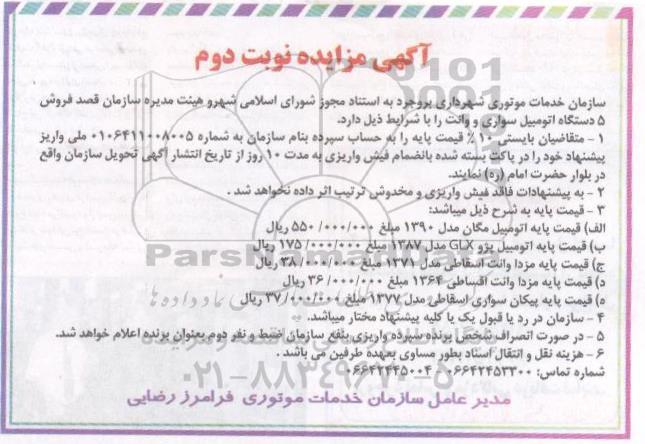 آگهی مزایده نوبت دوم
سازمان خدمات موتوری شهرداری بروجرد به استناد مجوز شورای اسلامی شهرو هیئت مدیره سازمان قصد فروش
۵ دستگاه اتومبیل سواری و وانت را با شرایط ذیل دارد.
۱ - متقاضیان بایستی ۱۰٪ قیمت پایه را به حساب سپرده بنام سازمان به شماره ۰۱۰۶۴۱۱۰۰۸۰۰۵ ملی واریز
پیشنهاد خود را در پاکت بسته شده بانضمام فیش واریزی به مدت ۱۰ روز از تاریخ انتشار آگهی تحویل سازمان واقع
در بلوار حضرت امام (ره) نمایند.
۲ - به پیشنهادات فاقد فیش واریزی و مخدوش ترتیب اثر داده نخواهد شد .
۳ - قیمت پایه به شرح ذیل میباشد:
الف) قیمت پایه اتومبیل مگان مدل ۱۳۹۰ مبلغ ۵۵۰/۰۰۰/۰۰۰ ریال
ب) قیمت پایه اتومبیل پژو GLX مدل ۱۳۸۷ مبلغ ۱۷۵/۰۰۰/۰۰۰ ریال
ج) قیمت پایه مزدا وانت اسقاطی مدل ۱۳۷۱ مبلغ ۳۸/۰۰۰/۰۰۰ ریال
د) قیمت پایه مزدا وانت اقساطی ۱۳۶۴ مبلغ ۳۶/۰۰۰/۰۰۰ ریال
ه) قیمت پایه پیکان سواری اسقاطی مدل ۱۳۷۷ مبلغ ۳۷/۰۰۰/۰۰۰ ریال
۴ - سازمان در رد یا قبول یک یا کلیه پیشنهاد مختار میباشد.
۵ - در صورت انصراف شخص برنده سپرده واریزی بنفع سازمان ضبط و نفر دوم بعنوان برنده اعلام خواهد شد.
۶ - هزینه نقل و انتقال اسناد بطور مساوی بعهده طرفین می باشد .
شماره تماس: ۰۶۶۴۲۴۵۳۳۰۰-۰۶۶۴۲۴۴۵۰۰۴
مدیر عامل سازمان خدمات موتوری فرامرز رضایی
ParsNamadData
۰۲۱-۸۸۳۴۹۶۷۰-۵